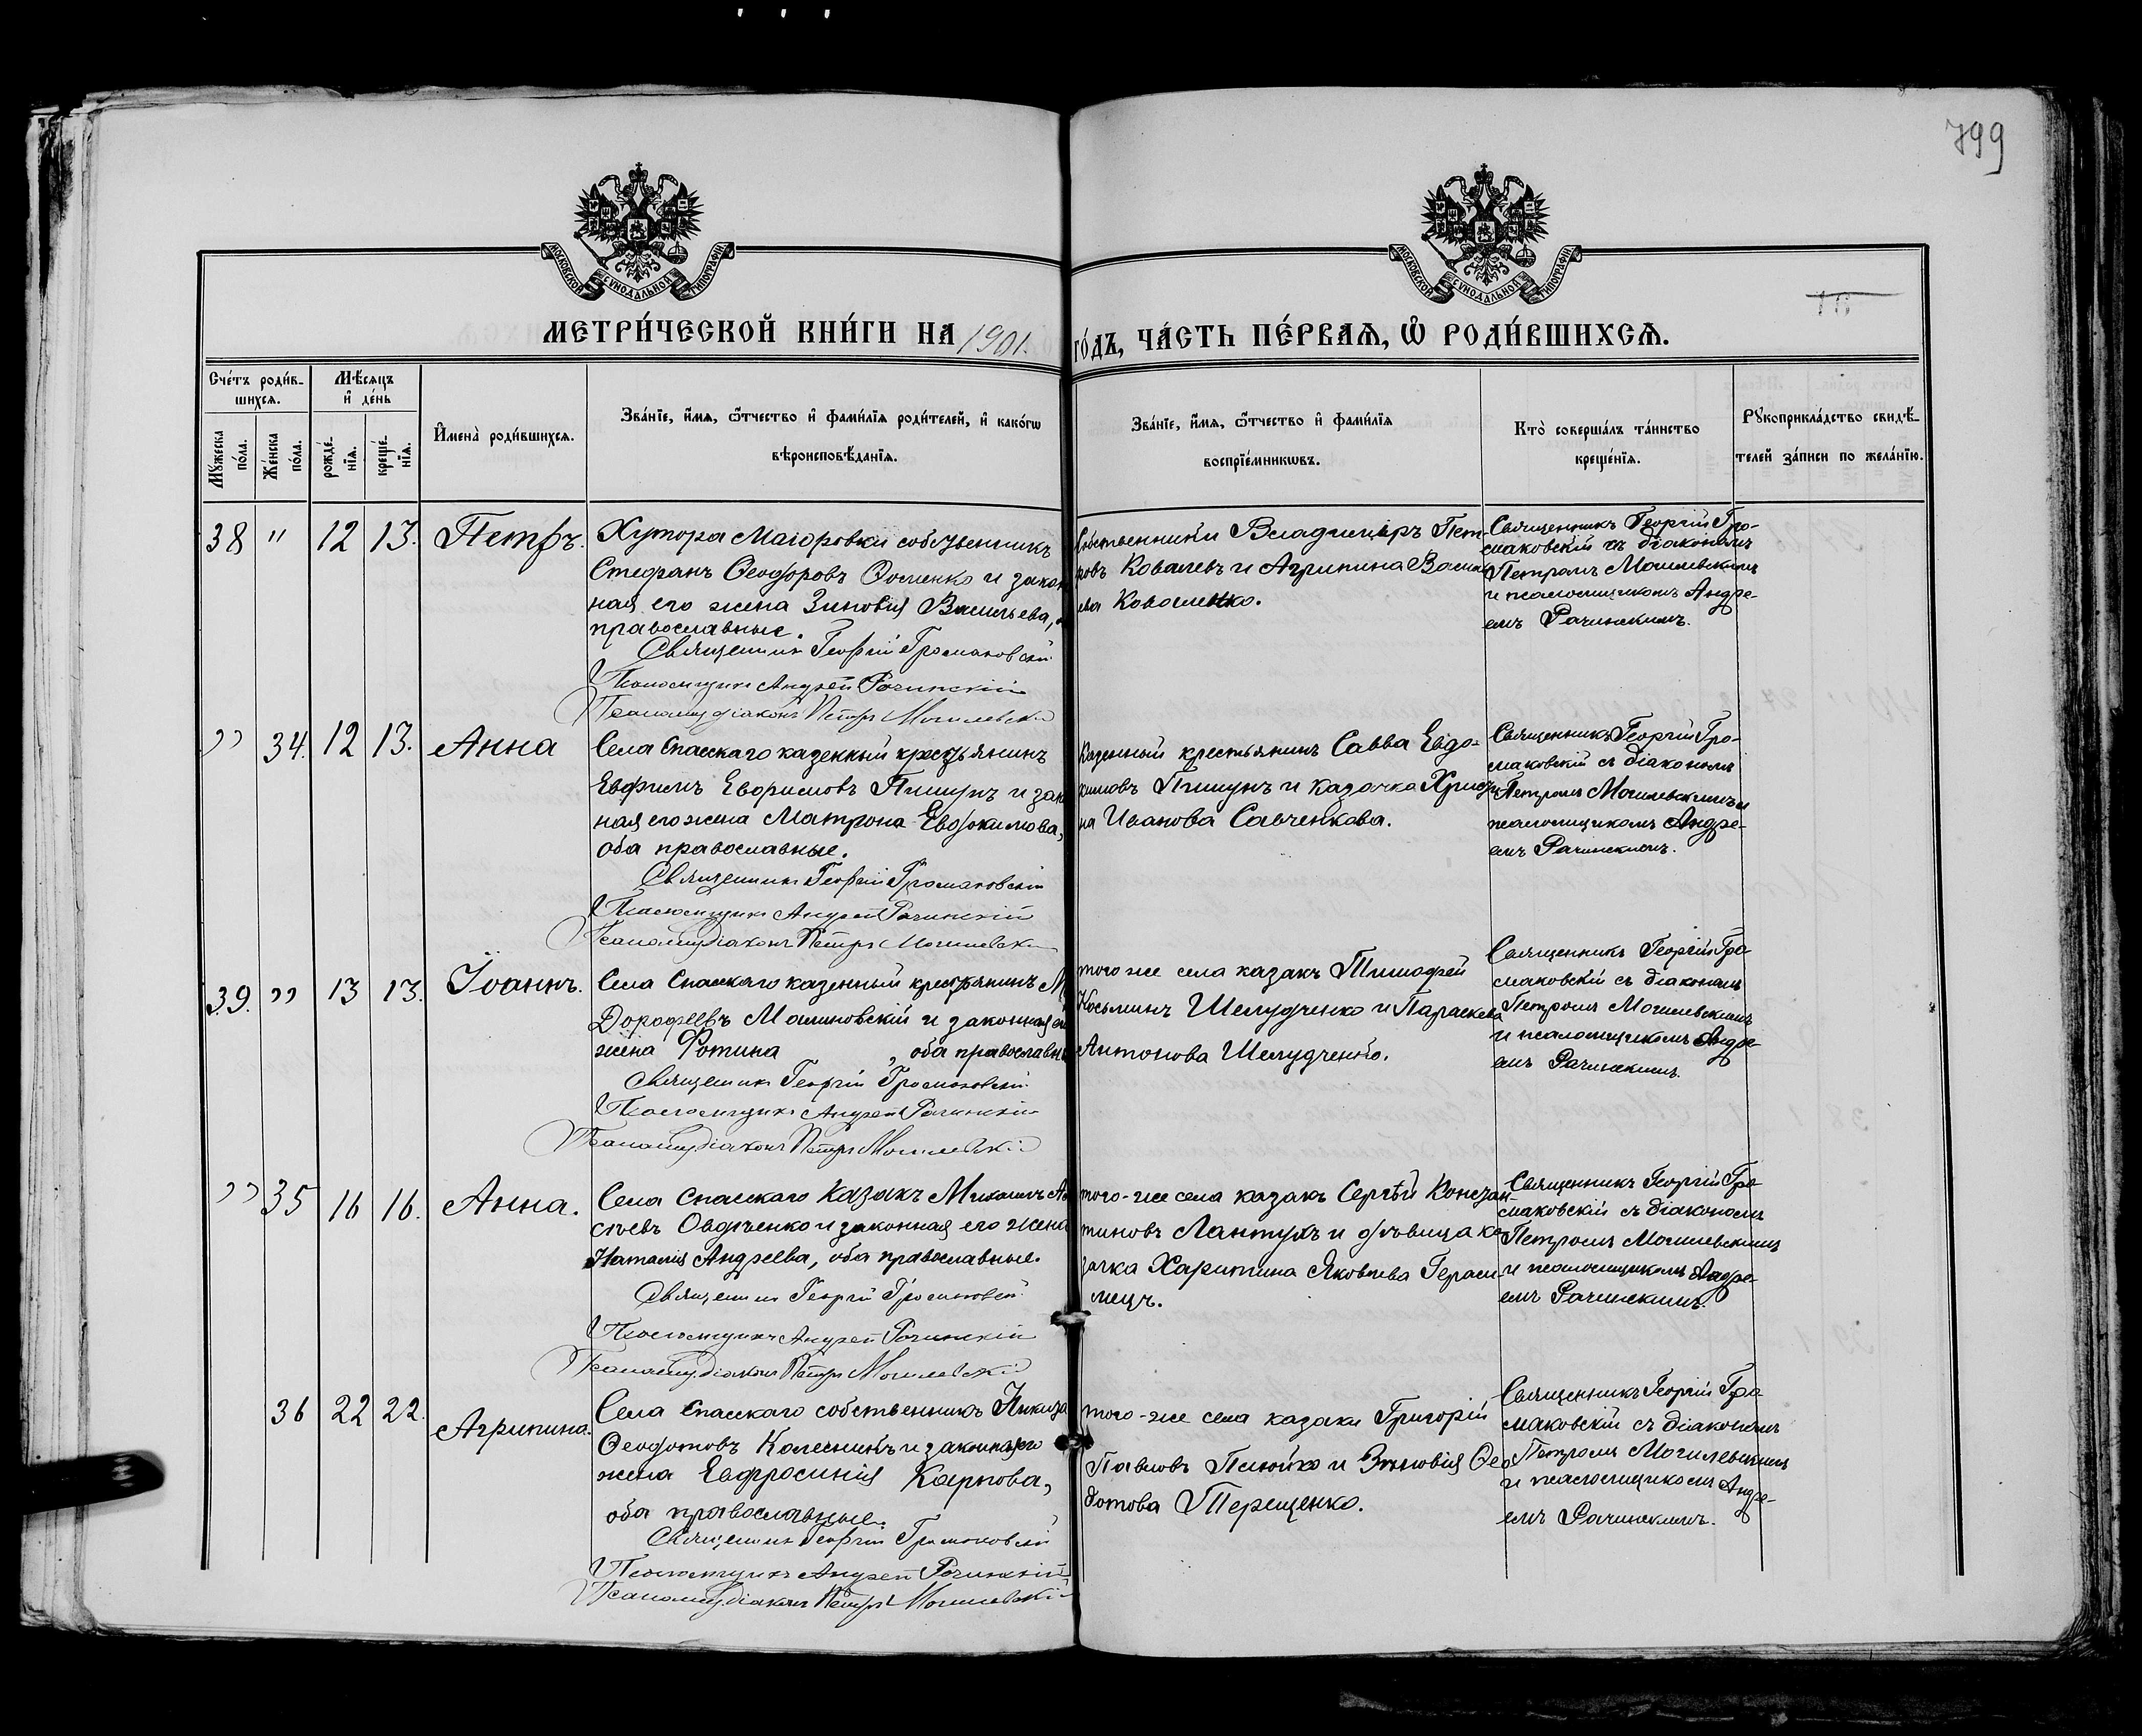 799
МОСКОВСКОЙ СѴНОДАЛЬНОЙ ТИПОГРАФІИ
МОСКОВСКОЙ СѴНОДАЛЬНОЙ ТИПОГРАФІИ
МЕТРИ́ЧЕСКОЙ КНИ́ГИ НА 1901. ГО́ДЪ, ЧА́СТЬ ПЕ́РВАѦ, Ѡ҆ РОДИ́ВШИХСѦ.
Сче́тъ роди́в-
шихсѧ.
Мꙋ́жеска по́ла.
Же́нска по́ла.
Мѣ́сѧцъ
и҆ де́нь
рожде́нїѧ.
креще́нїѧ.
И҆мена̀ роди́вшихсѧ.
Зва́нїе, и҆́мѧ, ѻ҆́тчество и҆ фами́лїѧ роди́телей, и҆ како́гѡ
вѣроисповѣ́данїѧ.
Зва́нїе, и҆́мѧ, ѻ҆́тчество и҆ фами́лїѧ
воспрїе́мникѡвъ.
Кто̀ соверша́лъ та́инство
креще́нїѧ.
Рꙋкоприкла́дство свидѣ́-
телей за́писи по жела́нїю.
38 " 12 13. Петръ.
Хутора Маіоровки собственникъ
Стефанъ Ѳеодоровъ и закон
ная его жена Зиновія Васильева,
православные.
Священникъ Георгій Громаковскій
Псаломщикъ Андрей Рачинскій
Псаломщ. діаконъ Петръ Могилевскій
Собственники Владиміръ Пет-
ровъ Ковалевъ и Агрипина Василь
ева Коваленко.
Священникъ Георгій Гро-
маковскій съ діакономъ
Петромъ Могилевскимъ
и псаломщикомъ Андре-
емъ Рачинскимъ.
" 34. 12 13. Анна
Села Спасскаго казенный крестьянинъ
Евфимъ Пишунъ и закон
ная его жена Матрона Евдокимова,
оба православные.
Священникъ Георгій Громаковскій
Псаломщикъ Андрей Рачинскій
Псаломщ. діаконъ Петръ Могилевскій
Казенный крестьянинъ Савва Евдо-
кимовъ Пишунъ и казачка Христи
на Иванова Савченкова.
Священникъ Георгій Гро-
маковскій съ діакономъ
Петромъ Могилевскимъ и
псаломщикомъ Андре-
емъ Рачинскимъ.
39. " 13 13. Іоаннъ.
Села Спасскаго казенный крестьянинъ
Дорофеевъ Малиновскій и законная его
жена Фотина , оба православн
Священникъ Георгій Громаковскій
Псаломщикъ Андрей Рачинскій
Псаломщ. діаконъ Петръ Могилевскій
того же села казакъ Тимофей
Косьминъ Шелудченко и Параскева
Антонова Шелудченко.
Священникъ Георгій Гро-
маковскій съ діакономъ
Петромъ Могилевскимъ
и псаломщикомъ Андре-
емъ Рачинскимъ.
" 35 16 16. Анна.
Села Спасскаго казакъ Михаилъ
Овдіенко и законная его жена
Наталія Андреева, оба православные.
Священникъ Георгій Громаковскій
Псаломщикъ Андрей Рачинскій
Псаломщ. діаконъ Петръ Могилевскій
того-же села казакъ Сергѣй Констан-
тиновъ Лантухъ и дѣвица ка-
зачка Харитина Яковлева Гераси-
мецъ.
Священникъ Георгій Гро-
маковскій съ діакономъ
Петромъ Могилевскимъ
и псаломщикомъ Андре-
емъ Рачинскимъ.
36 22 22. Агрипина.
Села Спасскаго собственникъ Никита
Ѳеодотовъ Колесникъ и законная его
жена Евфросинія Карпова,
оба православные.
Священникъ Георгій Громаковскій
Псаломщикъ Андрей Рачинскій
Псаломщ. діаконъ Петръ Могилевскій
того-же села казаки Григорій
Павловъ и Зиновія Ѳео
дотова Терещенко.
Священникъ Георгій Гро-
маковскій съ діакономъ
Петромъ Могилевскимъ
и псаломщикомъ Андре-
емъ Рачинскимъ.